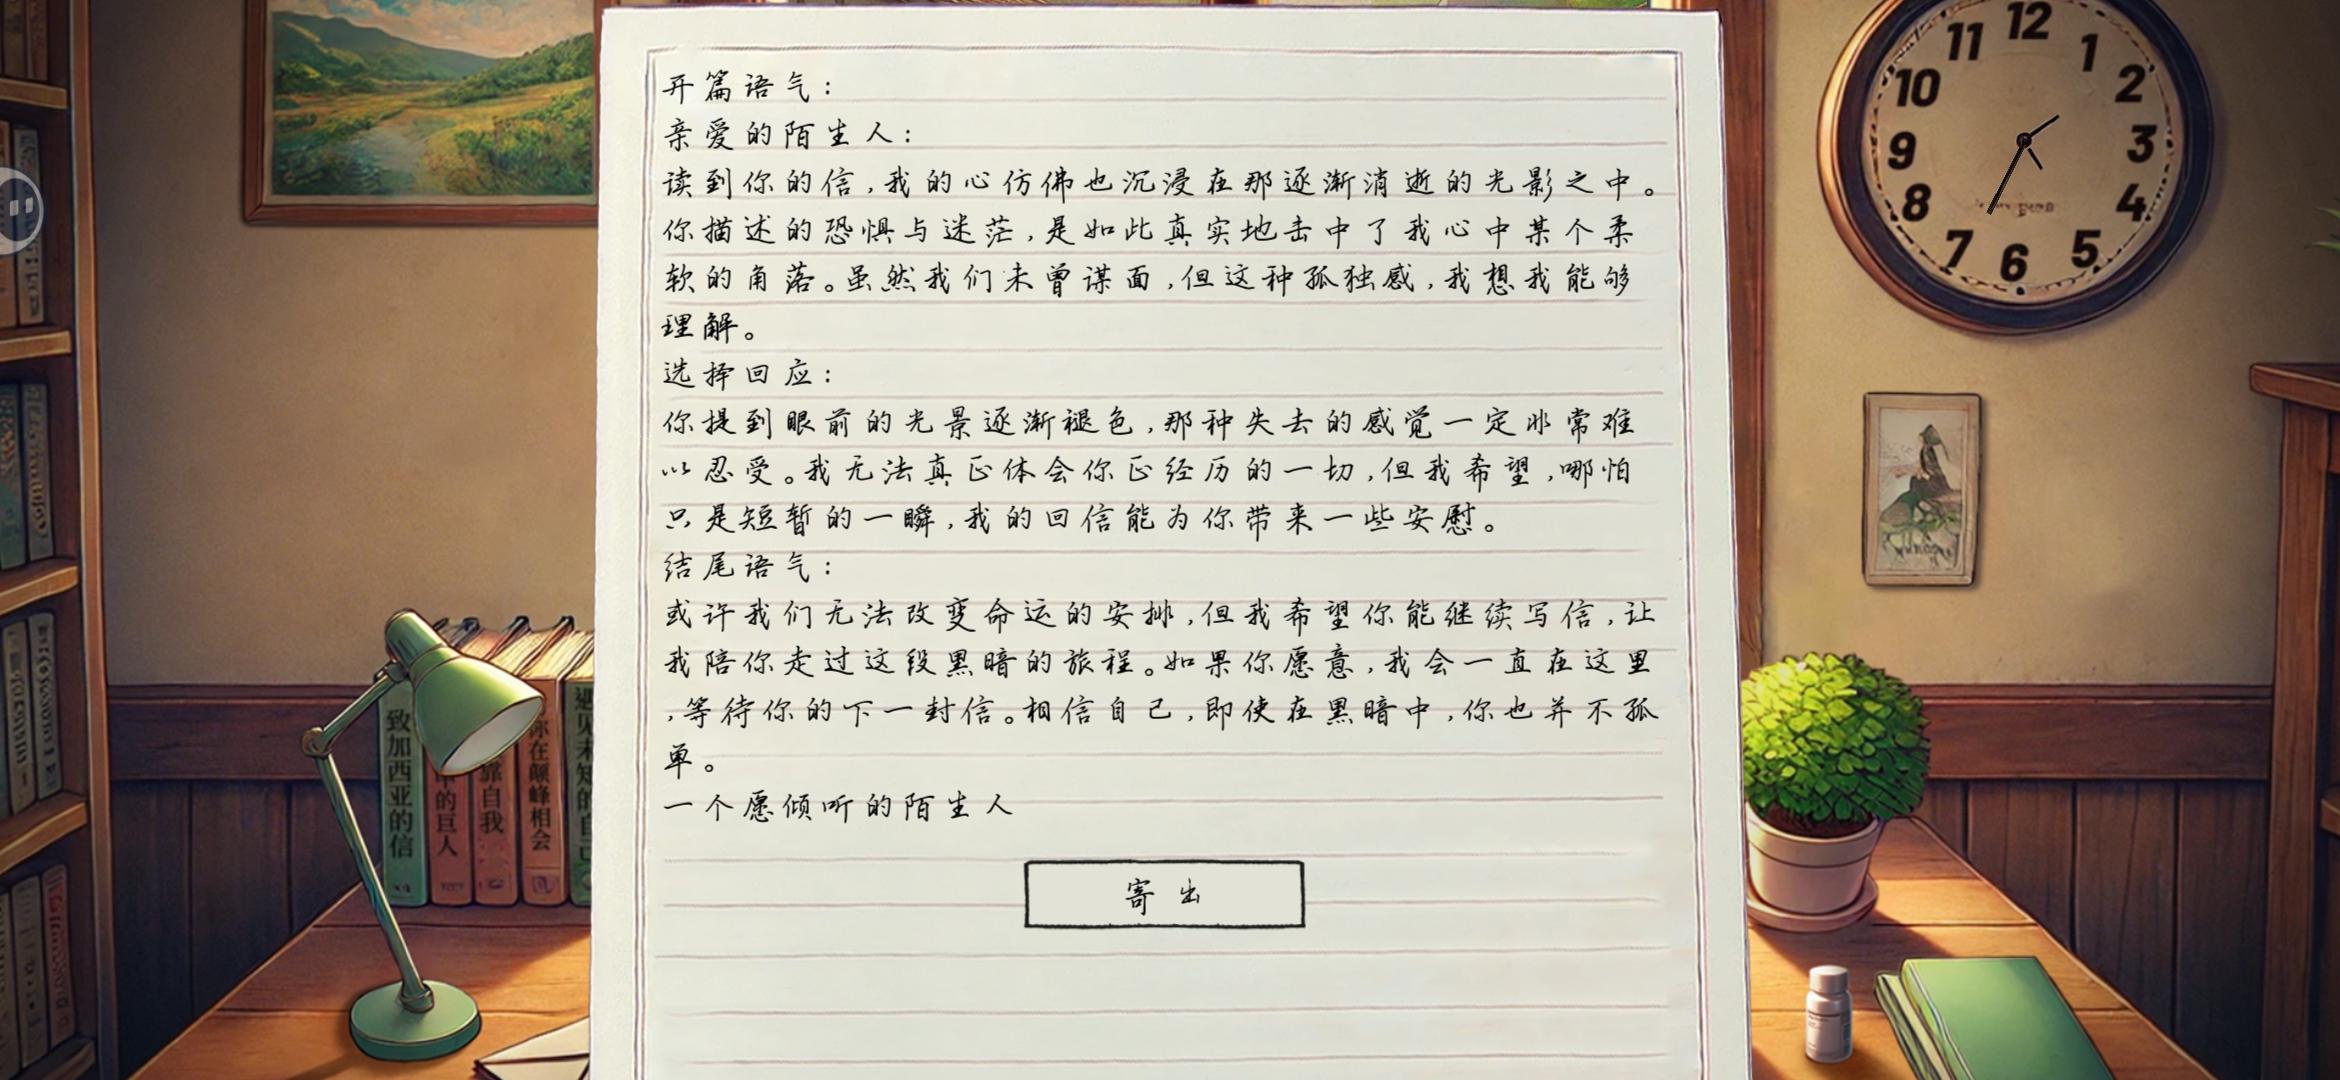 开篇语气：
亲爱的陌生人：
读到你的信，我的心仿佛也沉浸在那逐渐消逝的光影之中。
你描述的恐惧与迷茫，是如此真实地击中了我心中某个柔
软的角落。虽然我们未曾谋面，但这种孤独感，我想我能够
理解。
选择回应：
你提到眼前的光景逐渐褪色，那种失去的感觉一定非常难
以忍受。我无法真正体会你正经历的一切，但我希望，哪怕
只是短暂的一瞬，我的回信能为你带来一些安慰。
结尾语气：
或许我们无法改变命运的安排，但我希望你能继续写信，让
我陪你走过这段黑暗的旅程。如果你愿意，我会一直在这里
，等待你的下一封信。相信自己，即使在黑暗中，你也并不孤
单。
一个愿倾听的陌生人
寄出
12
1
2
3
4
5
6
7
8
9
10
11
致加西亚的信
中的巨人
靠自我
你在颠峰相会
遇见未知的自己